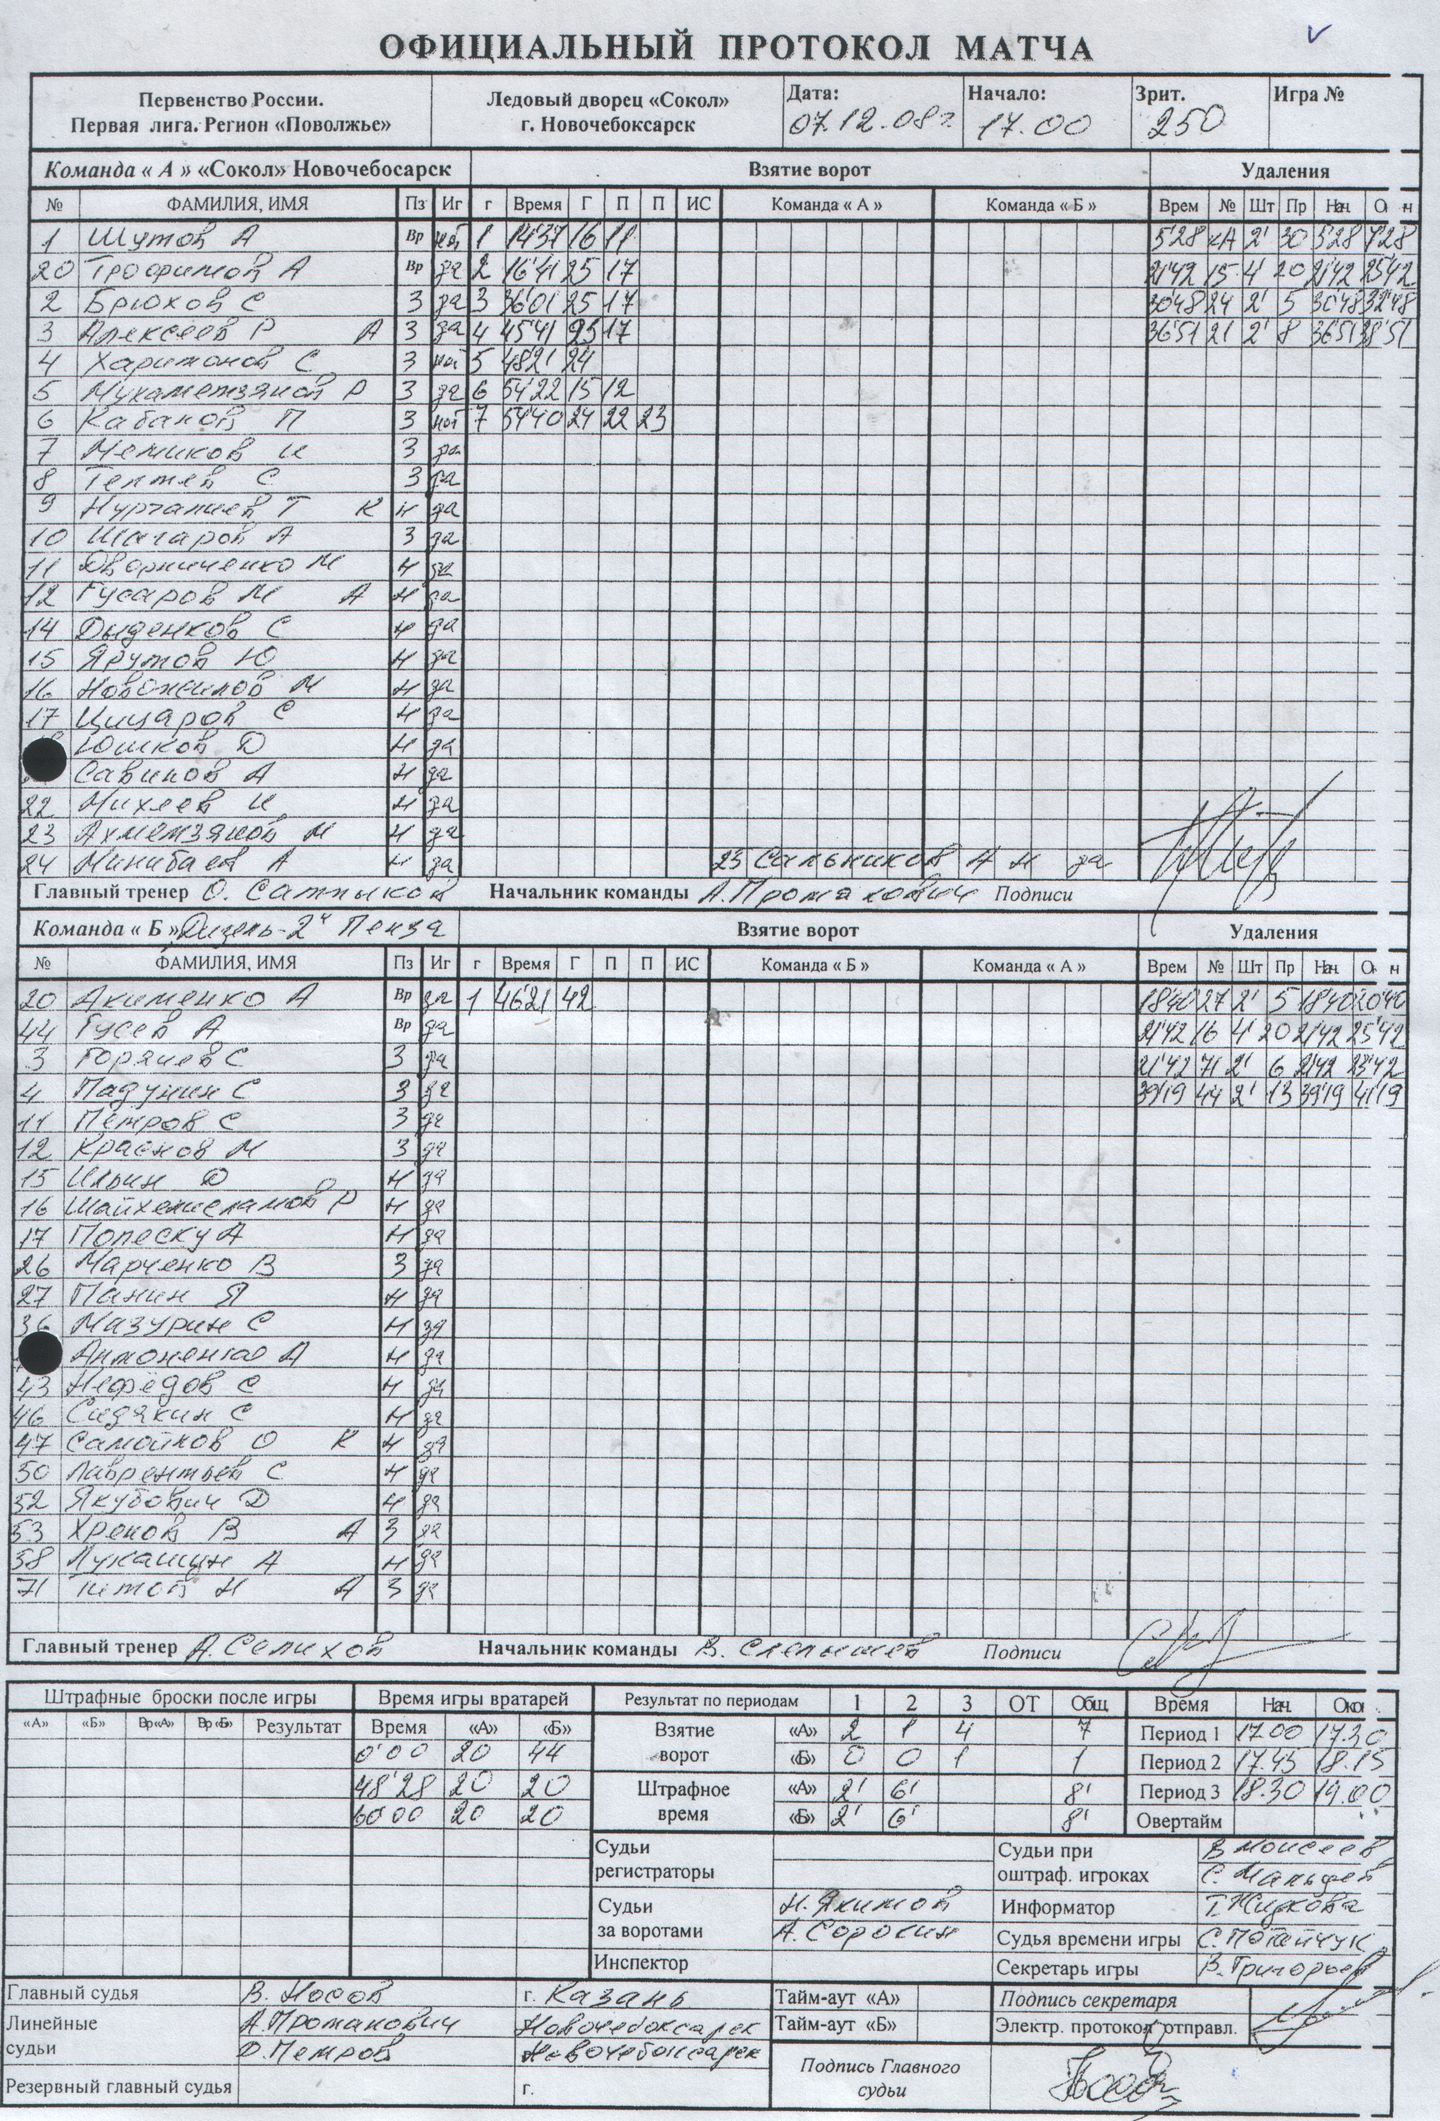 ОФИЦИАЛЬНЫЙ ПРОТОКОЛ МАТЧА
Первенство России. Первая лига. Регион «Поволжье» Ледовый дворец «Сокол» г. Новочебоксарск Дата: 07.12.08г. Начало: 17.00 Зрит. 250 Игра №
Команда « А » «Сокол» Новочебосарск Взятие ворот Удаления
№ ФАМИЛИЯ, ИМЯ Пз Иг г Время Г П П ИС Команда « А » Команда « Б » Врем № Шт Пр Нач.
1 Шутов А Вр нет 1 14'37 16 11 5'28 КА 2' 30 5'28 7'28
20 Трофимов А Вр да 2 16'41 25 17 21'42 15 4' 20 21'42 25'42
2 Брюхов С З да 3 36'01 25 17 30'48 24 2' 5 30'48 32'48
3 Алексеев Р А З да 4 45'41 25 17 36'51 21 2' 8 36'51 38'51
4 Харитонов С З нет 5 48'21 24
5 Мухаметзянов Р З да 6 54'22 15 12
6 Кабанов П З нет 7 54'40 24 22 23
7 Мешков И З да
8 Тептев С З да
9 Нургалиев Т К Н да
10 Шагаров А З да
11 Дворниченко М Н да
12 Гусаров М А Н да
14 Дыденков С Н да
15 Ярутов Ю Н да
16 Новожилов М Н да
17 Цицаров С Н да
Юшков Д Н да
Савинов А Н да
22 Михеев И Н да
23 Ахметзянов М Н да
24 Минибаев А Н да 25 Сальников А Н да
Главный тренер О. Салтыков Начальник команды А. Проманович Подписи
Команда « Б » Дизель-2 Пенза Взятие ворот Удаления
№ ФАМИЛИЯ, ИМЯ Пз Иг г Время Г П П ИС Команда « Б » Команда « А » Врем № Шт Пр Нач.
20 Акименко А Вр да 1 46'21 42 18'40 27 2' 5 18'40 20'40
44 Гусев А Вр да 21'42 16 4' 20 21'42 25'42
3 Горячев С З да 21'42 71 2' 6 21'42 23'42
4 Падунин С З да 39'19 44 2' 13 39'19 41'19
11 Петров С З да
12 Краснов М З да
15 Ильин Д Н да
16 Шайхелисламов Р Н да
17 Попеску А Н да
26 Марченко В З да
27 Панин Я Н да
36 Мазурин С Н да
Антоненко А Н да
43 Нефёдов С Н да
46 Сидякин С Н да
47 Самойлов О К Н да
50 Лаврентьев С Н да
52 Якубович Д Н да
53 Хренов В А З да
58 Лукашин А Н да
71 Титов Н А З да
Главный тренер А. Селихов Начальник команды В. Слепышев Подписи
Штрафные броски после игры Время игры вратарей Результат по периодам 1 2 3 ОТ Общ. Время Нач. Окон.
«А» «Б» Вр «А» Вр «Б» Результат Время «А» «Б» Взятие ворот «А» 2 1 4 7 Период 1 17.00 17.30
0'00 20 44 «Б» 0 0 1 1 Период 2 17.45 18.15
48'28 20 20 Штрафное время «А» 2' 6' 8' Период 3 18.30 19.00
60'00 20 20 «Б» 2' 6' 8' Овертайм
Судьи регистраторы Судьи при оштраф. игроках В. Моисеев С. Мальцев
Судьи за воротами Н. Якимов А. Сорокин Информатор Т. Жидкова
Судья времени игры С. Потайчук
Инспектор Секретарь игры В. Григорьев
Главный судья В. Носов г. Казань Тайм-аут «А» Подпись секретаря
Линейные судьи А. Проманович Новочебоксарск Тайм-аут «Б» Электр. протокол отправл.
Д. Петров Новочебоксарск Подпись Главного судьи
Резервный главный судья г.